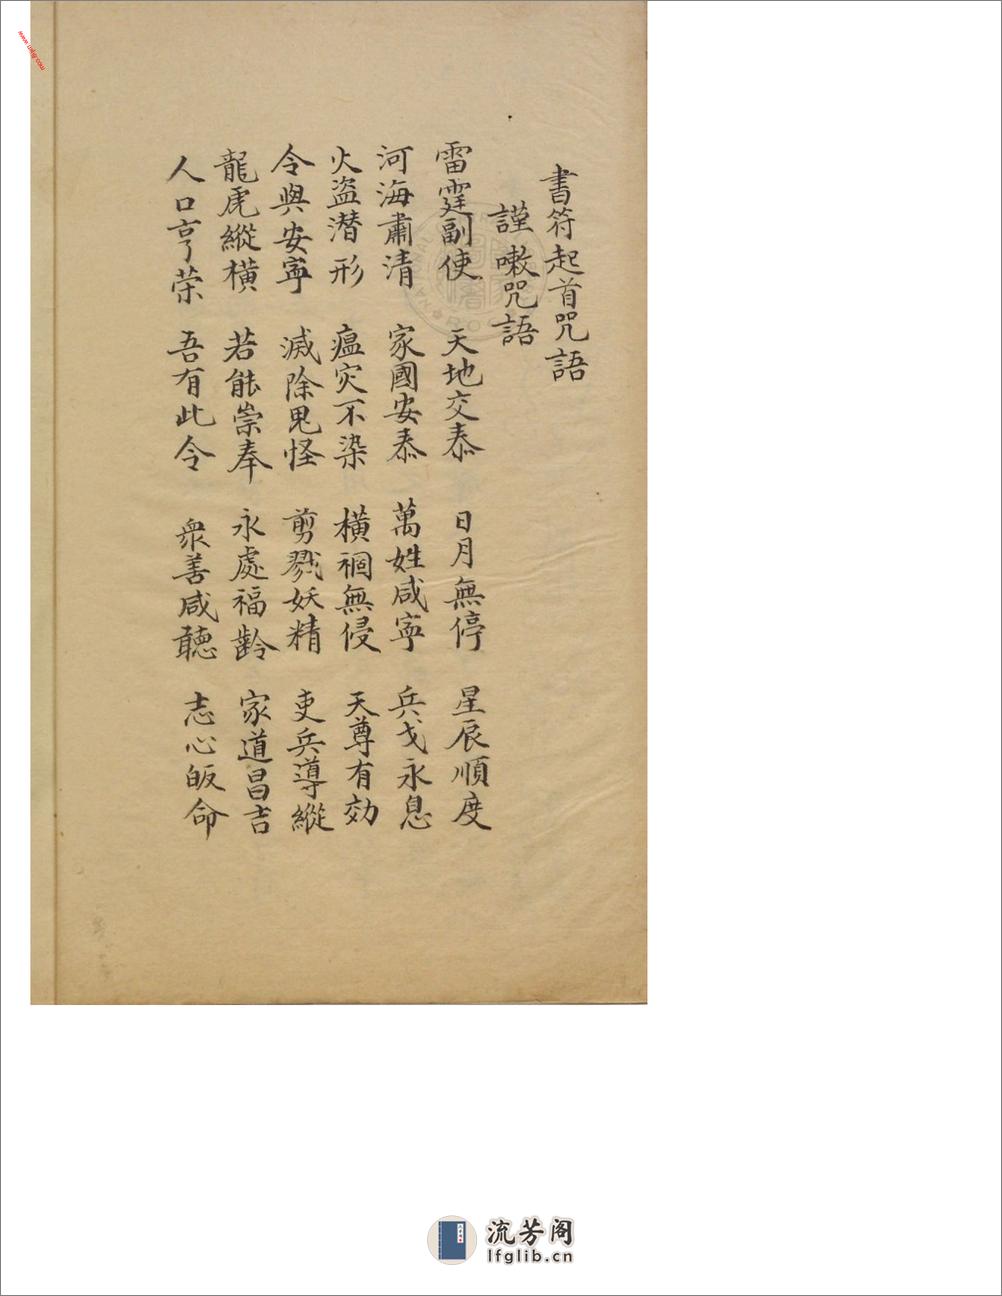 書符起首咒語
謹噀咒語
雷霆副使 天地交泰 日月無停 星辰順度
河海肅清 家國安泰 萬姓咸寧 兵戈永息
火盗潜形 瘟灾不染 横禍無侵 天尊有効
令與安寧 滅除鬼怪 剪戮妖精 吏兵導縱
龍虎縱横 若能崇奉 永處福齡 家道昌吉
人口亨荣 吾有此令 衆善咸聽 志心皈命
www.lnfgj.com
流芳阁
lfglib.cn